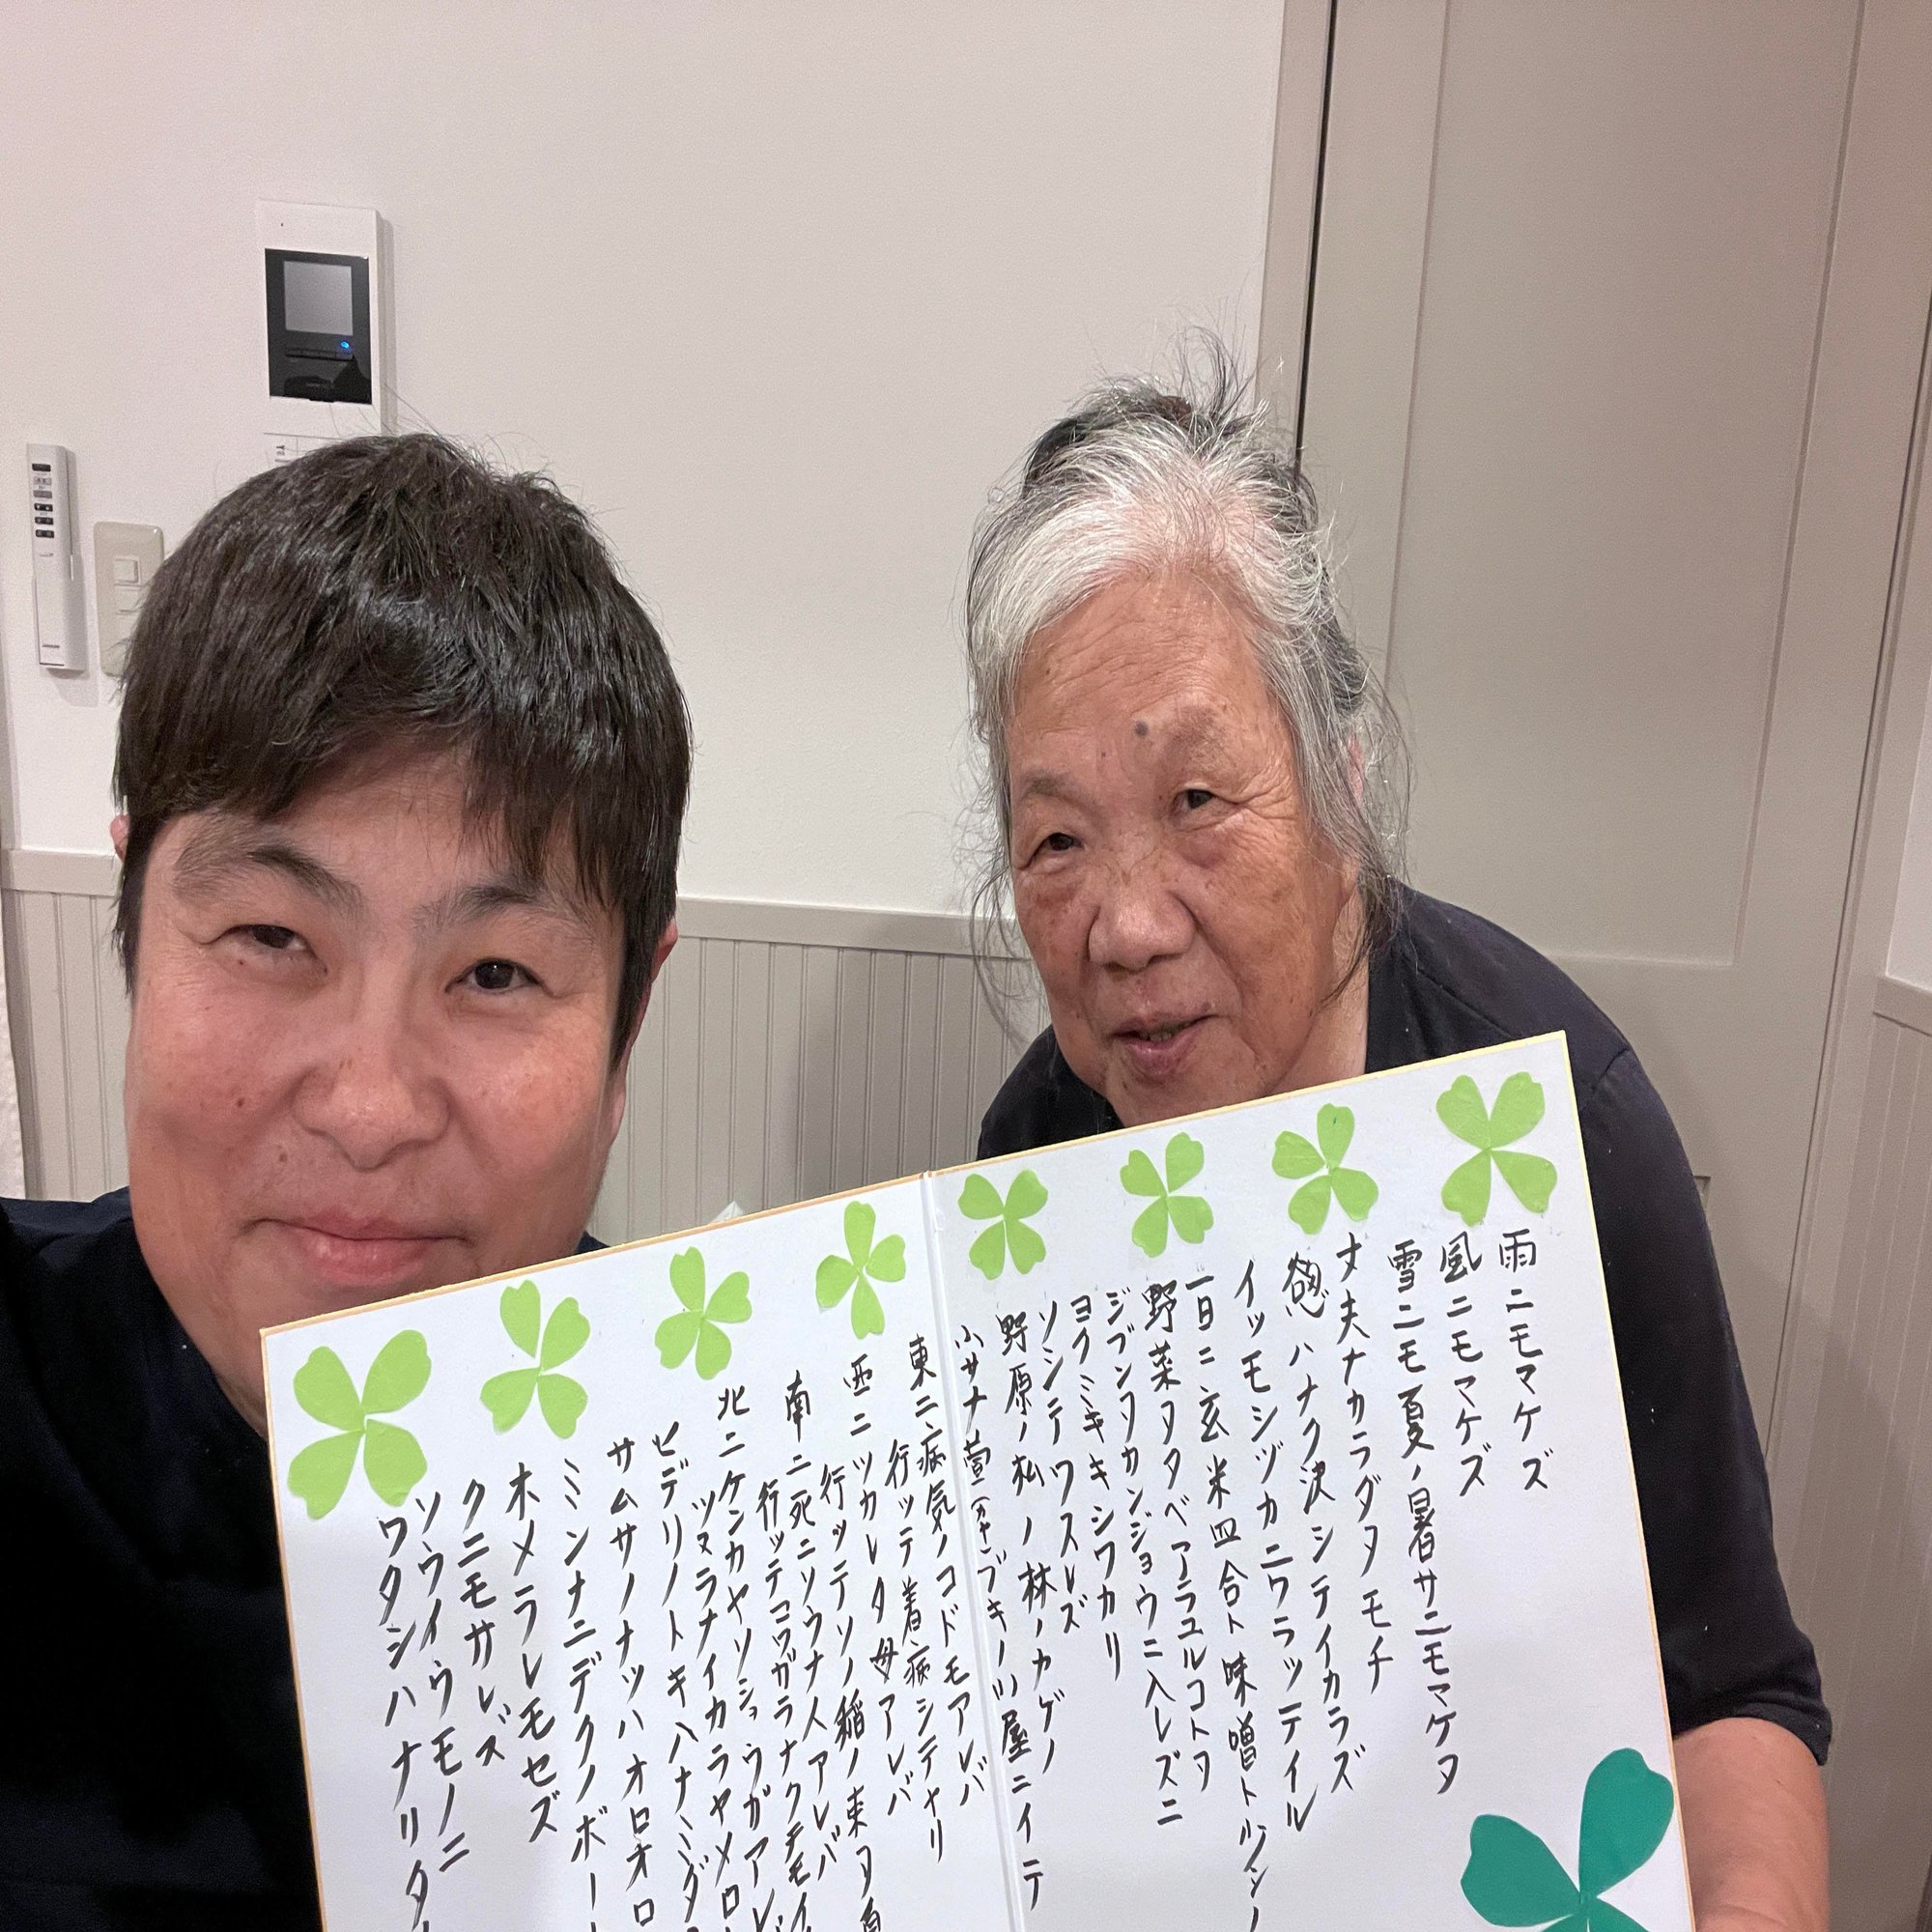 雨ニモマケズ
風ニモマケズ
雪ニモ夏ノ暑サニモマケヌ
丈夫ナカラダヲモチ
慾ハナク決シテイカラズ
イツモシヅカニワラッテイル
一日ニ玄米四合ト味噌ト少シノ
野菜ヲタベアラユルコトヲ
ジブンヲカンジョウニ入レズニ
ヨクミキキシワカリ
ソシテワスレズ
野原ノ松ノ林ノカゲノ
小サナ萱(カヤ)ブキノ小屋ニイテ
東ニ病気ノコドモアレバ
行ッテ着病シテヤリ
西ニツカレタ母アレバ
行ッテソノ稲ノ束ヲ
南ニ死ニソウナ人アレバ
行ッテコワガラナクテモイ
北ニケンカヤソショウガアレバ
ツマラナイカラヤメロ
ヒデリノトキハナミダ
サムサノナツハオロオロ
ミンナニデクノボー
ホメラレモセズ
クニモサレズ
ソウイウモノニ
ワタシハナリタ